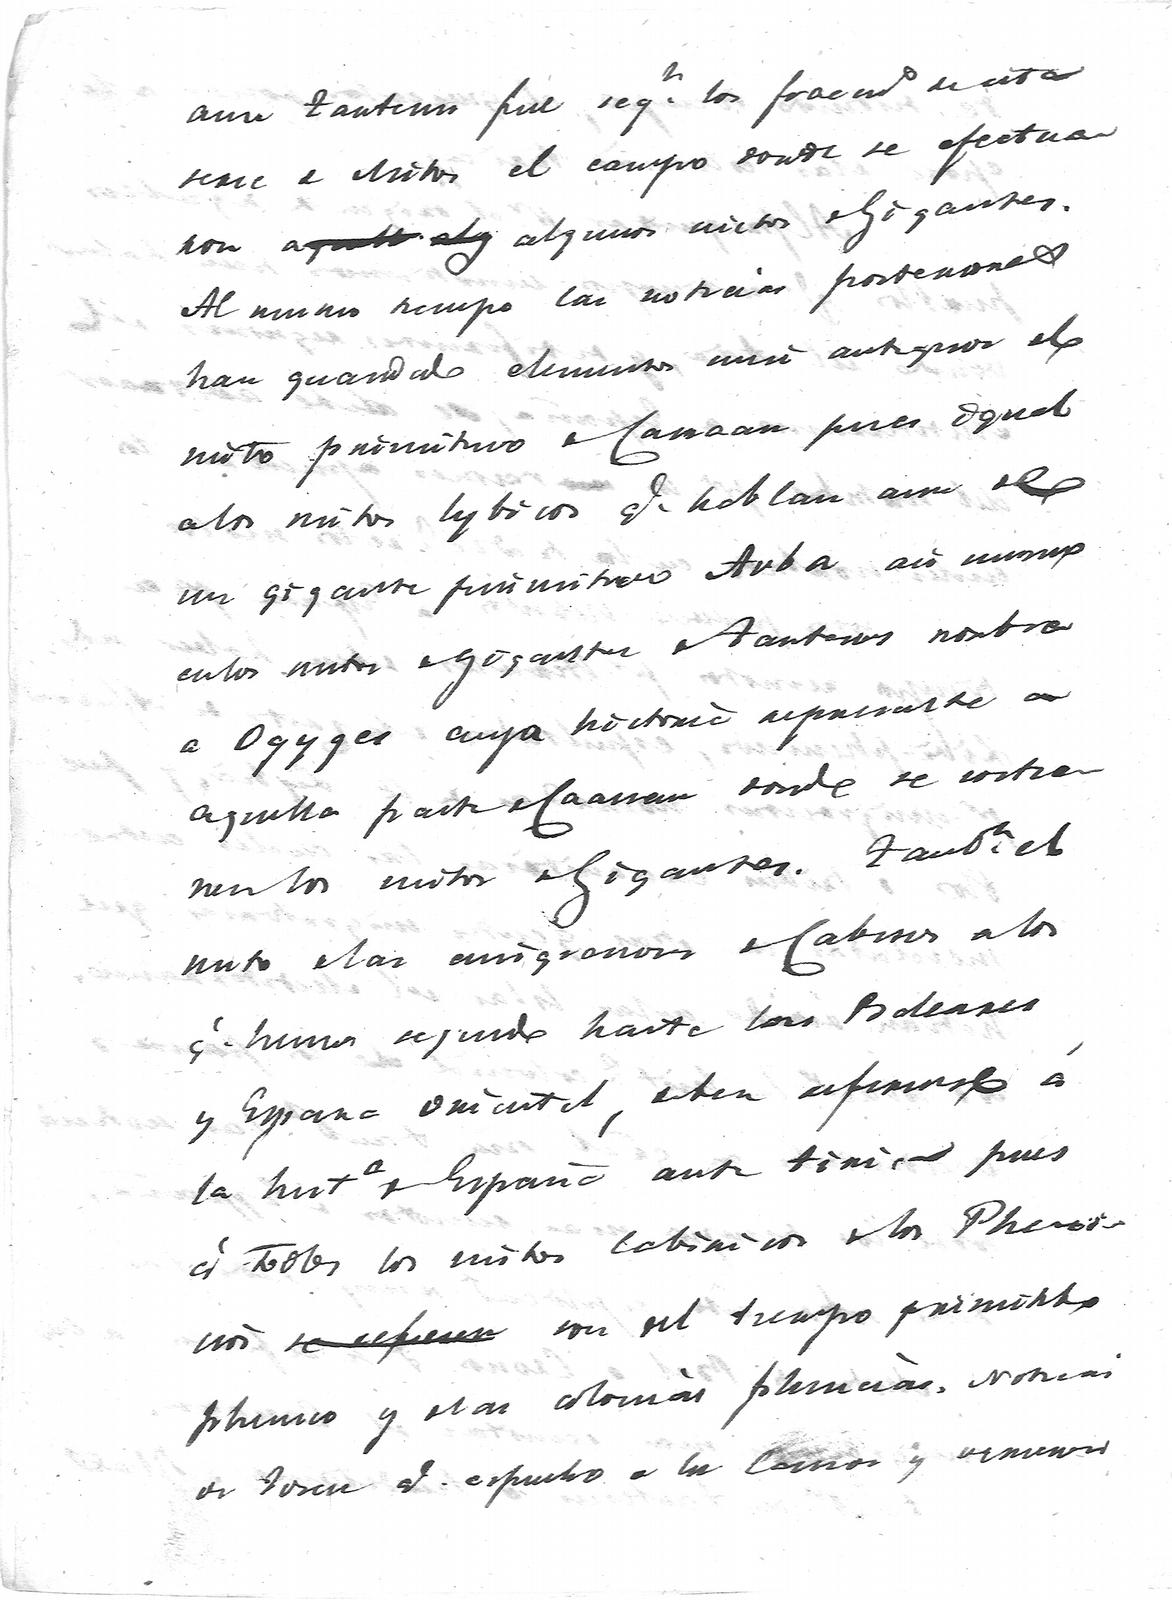 aun Tauteno fue segn los fraccnd de esta
serie de Mitos el campo donde se efectua
ron aquell alg algunos mitos de Gigantes.
Al mismo tiempo las noticias posteriores
han guardado elementos mui antiguos del
mito primitivo de Canaan pues igual
a los mitos lybicos q. hablan aun de
un gigante primitivo Arba asi mismo
en los mitos de Gigantes de Tauteno nombra
a Ogyges cuya historia representa a
aquella parte de Canaan donde se contie
nen los mitos de Gigantes. Tambn el
mito de las emigraciones de Cabiros a los
q. hemos seguido hasta las Baleares
y España oriental, deben referirse á
la hista de España ante pues
á todos los mitos cabiricos de los Pheni-
cios se refieren son del tiempo primitivo
phenico y de las colonias phenicias. Noticias
de q. a la y